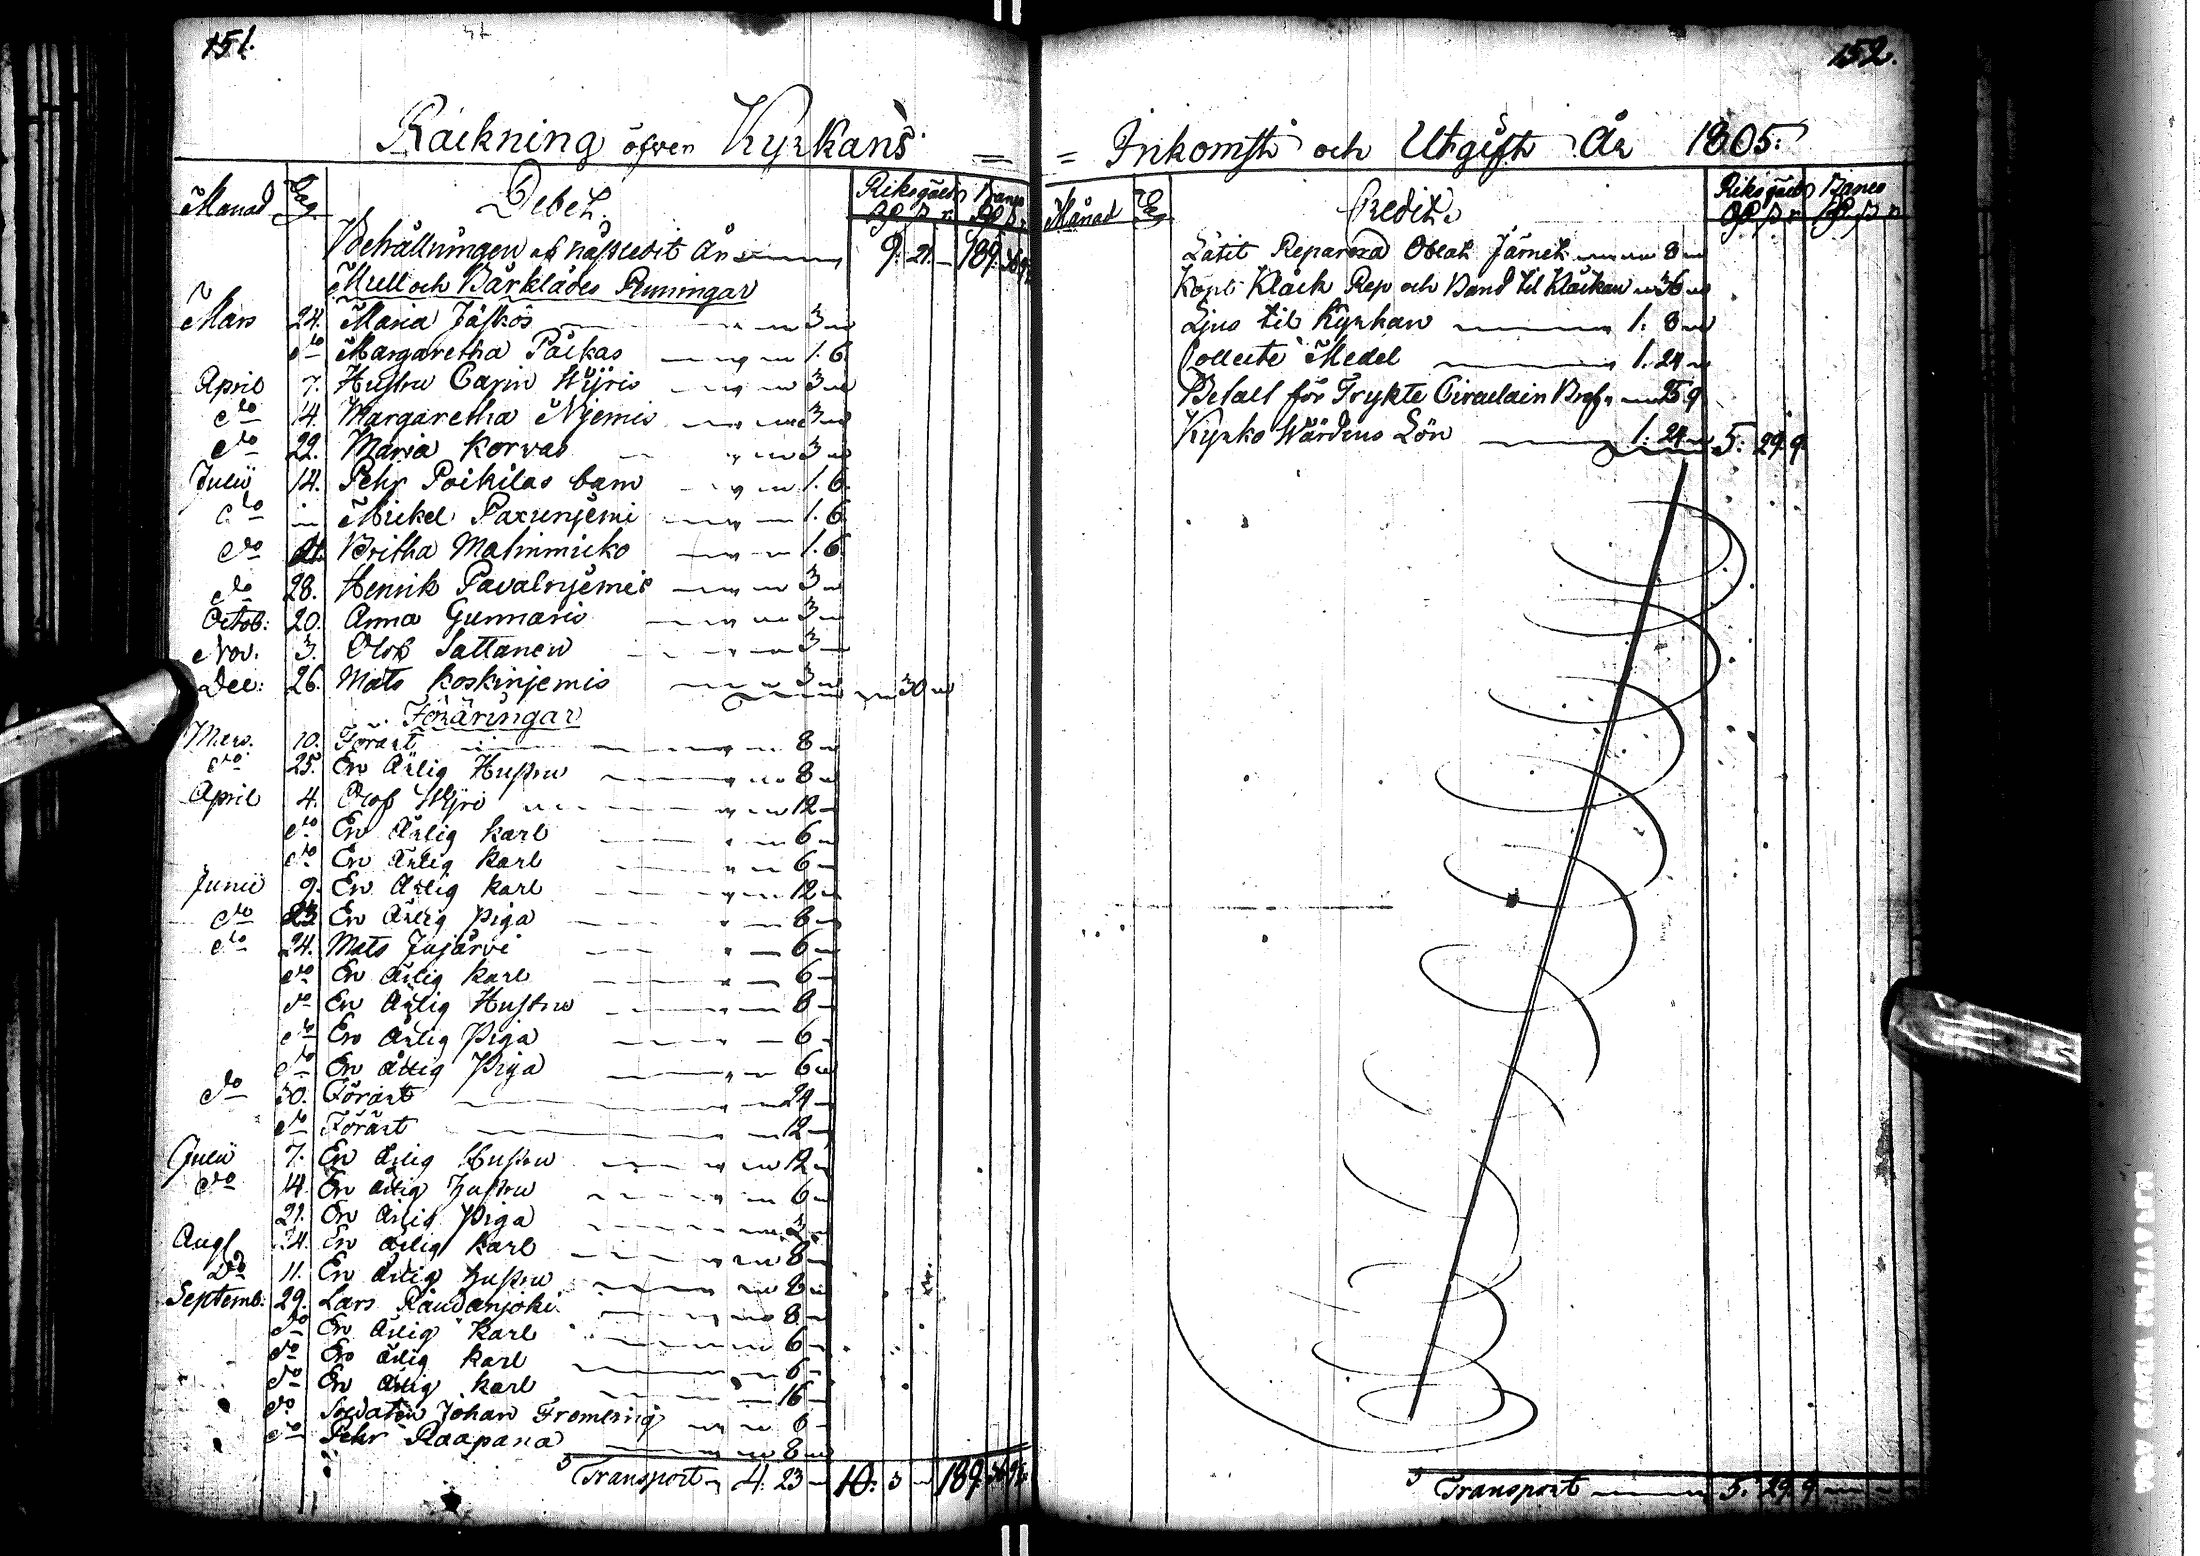 151.
Räckning öfwer Kyrkans =
Månad Dag Debet. Riksgäld Banco
Rd ß r. Rd ß r.
Behållningen af näst ledit År 9: 21. — 189:
Mull och Bårklädes Penningar
Mars 24. Maria Jäskös 3
do Margaretha Paikas 1. 6.
April 7. Hustru Carin Wÿris 3
do 14. Margaretha Njemis 3
do 22. Maria Korvas 3
Julii 14. Pehr Poikilas barn 1. 6.
do Mickel Paxunjemi 1. 6.
do 21. Britha Malinmicko 1. 6.
do 28. Henrik Pavalnjemis 3
Octob: 20. Anna Gunnaris 3
Nov. 3. Olof Sattanen 3
Dec: 26. Mats Koskinjemis 3 30
Föräringar
Mars. 10. Förärt 8
do 25. En Ärlig Hustru 8
April 4. Olof Wÿri 12
do En Ärlig karl 6
do En Ärlig Karl 6
Junii 9. En Ärlig karl 12
do 23 En Ärlig Piga 8
do 24. Mats Jujärvi 6
do En Ärlig karl 6
do En Ärlig Hustru 8
do En Ärlig Piga 6
do En Ärlig Piga 6
do 30. Förärt 24
do Förärt 12
Julii 7. En Ärlig Hustru 12
do 14. En ärlig hustru 6
21. En Ärlig Piga
Aug. 4. En ärlig karl 8
Do 11. En ärlig hustru 8
Septemb: 29. Lars Raudanjoki 8
do En Ärlig Karl 6
do En ärlig karl 6
do En ärlig karl 16
do Soldaten Johan 8
do Pehr Raapana 8
Transport 4. 23 10: 3 189:
152.
= Inkomst och Utgift År 1805.
Månad Dag Credit. Riksgäld Banco
Rd ß r Rd ß r
Låtit Reparera Oblat Järnet 8
Köpt Kläck Rep och Band til Kläckan 36
Ljus til Kyrkan 1: 8
Collecte Medel 1. 24
Betalt för Trykte Circulair Bref 25 9
Kyrko Wärdens Lön 1: 24 5: 29. 9.
Transport 5. 29 9